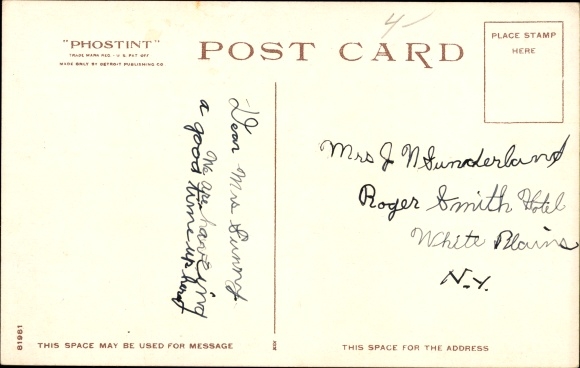 4-
"PHOSTINT"
TRADE MARK REG. U.S. PAT. OFF.
MADE ONLY BY DETROIT PUBLISHING CO.
POST CARD
PLACE STAMP
HERE
Dear Mrs Sunny
We are haveing
a good time up here
Mrs J N Sunderland
Roger Smith Hotel
White Plains
N.Y.
81981
THIS SPACE MAY BE USED FOR MESSAGE
THIS SPACE FOR THE ADDRESS